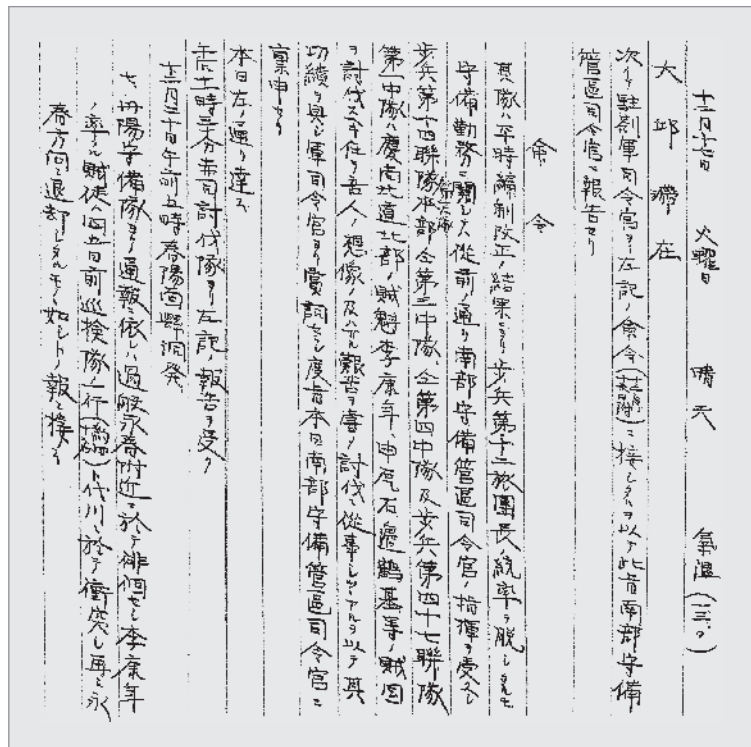 十二月十七日 火曜日 晴天 氣温(三、〇)
大邱滯在
次テ駐剳軍司令官ヨリ左記ノ命令ニ接シタルヲ以テ此旨南部守備
管區司令官ニ報告セリ
命令
其隊ハ平時編制改正ノ結果ニヨリ歩兵第十二旅團長ノ統率ヲ脱シタルモ
守備勤務ニ關シテハ從前ノ通リ南部守備管區司令官ノ指揮ヲ受クヘシ
歩兵第十四聯隊本部仝第二中隊、仝第四中隊及歩兵第四十七聯隊
第一中隊ハ慶尚北道北部ノ賊魁李康年、申乭石、邉鶴基等ノ賊団
ヲ討伐スヘキ任ヲ吾人ノ想像ノ及ハサル艱苦ヲ嘗メ討伐ニ從事シツヽアルヲ以テ其
功績ヲ具シ軍司令官ヨリ賞詞 度旨本日南部守備管區司令官ニ
稟申セリ
本日左ノ通リ達ス
午后十一時三十分赤司討伐隊ヨリ左記報告ヲ受ク
十二月十日午前五時春陽面 洞発
七、丹陽守備隊ヨリノ通報ニ依レハ過般永春附近ニ於テ徘徊セシ李康年
ノ率ル賊徒ハ四五日前巡檢隊ノ一行 ト代川ニ於テ衝突シ再ヒ永
春方向ニ退却シタルモノヽ如シトノ報ニ接ス